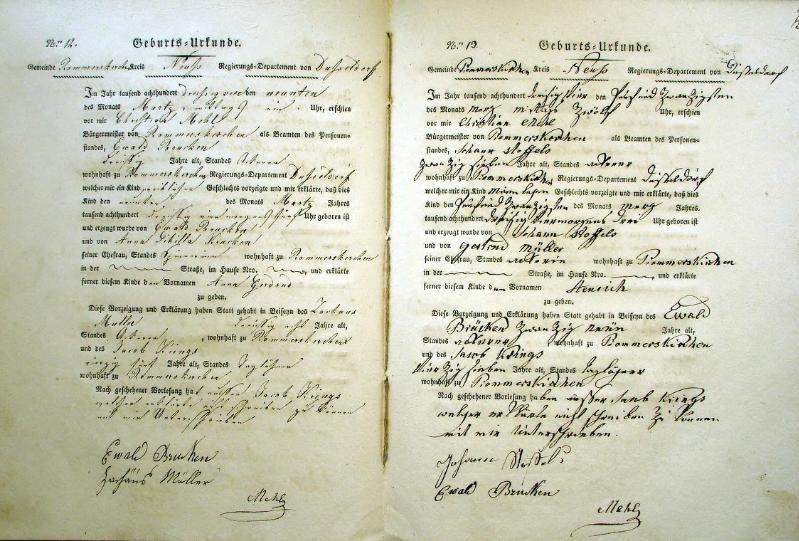 Nro 12. Geburts-Urkunde.
Gemeinde Rommerskirchen Kreis Neuss Regierungs-Departement von Düsseldorf
Im Jahr tausend achthundert dreisig vier den neunten
des Monats Mertz Uhr, erschien
vor mir Christian Mehl
Bürgermeister von Rommerskirchen als Beamten des Personen-
standes, Ewald Brücken
dreisig Jahre alt, Standes Ackerer
wohnhaft zu Rommerskirchen Regierungs-Departement Düsseldorf
welcher mir ein Kind weiblichen Geschlechts vorzeigte und mir erklärte, daß dies
Kind den neunten des Monats Mertz Jahres
tausend achthundert dreisig vier Uhr geboren ist
und erzeugt wurde von Ewald Brücken
und von Anna Sibilla
seiner Ehefrau, Standes wohnhaft zu Rommerskirchen
in der Straße, im Hause Nro. und erklärte
ferner diesem Kinde den Vornamen Anna Gudrud
zu geben.
Diese Vorzeigung und Erklärung haben Statt gehabt in Beiseyn des
Müller dreisig acht Jahre alt,
Standes Ackerer, wohnhaft zu Rommerskirchen
und des Jacob Krings
Jahre alt, Standes Taglöhner
wohnhaft zu Rommerskirchen
Nach geschehener Vorlesung hat ausser Jacob Krings
welcher erklärte nicht schreiben zu können
mit mir Unterschrieben
Ewald Brücken
Zachäus Müller
Mehl
Nro 13. Geburts-Urkunde.
Gemeinde Rommerskirchen Kreis Neuss Regierungs-Departement von Düsseldorf
Im Jahr tausend achthundert dreisig vier den fünfund zwanzigsten
des Monats merz mittags zwölf Uhr, erschien
vor mir Christian Mehl
Bürgermeister von Rommerskirchen als Beamten des Personen-
standes, Johann Stoffels
zwanzig sieben Jahre alt, Standes ackerer
wohnhaft zu Rommerskirchen Regierungs-Departement Düsseldorf
welcher mir ein Kind Männlichen Geschlechts vorzeigte und mir erklärte, daß dies
Kind den fünfund zwanzigsten des Monats merz Jahres
tausend achthundert dreisig vier morgens drei Uhr geboren ist
und erzeugt wurde von Johann Stoffels
und von Gertrud Müller
seiner Ehefrau, Standes ackerin wohnhaft zu Rommerskirchen
in der Straße, im Hause Nro. und erklärte
ferner diesem Kinde den Vornamen Henrich
zu geben.
Diese Vorzeigung und Erklärung haben Statt gehabt in Beiseyn des Ewald
Brücken zwanzig neun Jahre alt,
Standes ackerer wohnhaft zu Rommerskirchen
und des Jacob Krings
vierzig sieben Jahre alt, Standes taglöhner
wohnhaft zu Rommerskirchen
Nach geschehener Vorlesung haben ausser Jacob Krings
welcher erklärte nicht schreiben zu können
mit mir Unterschrieben.
Johann Stoffels
Ewald Brücken
Mehl